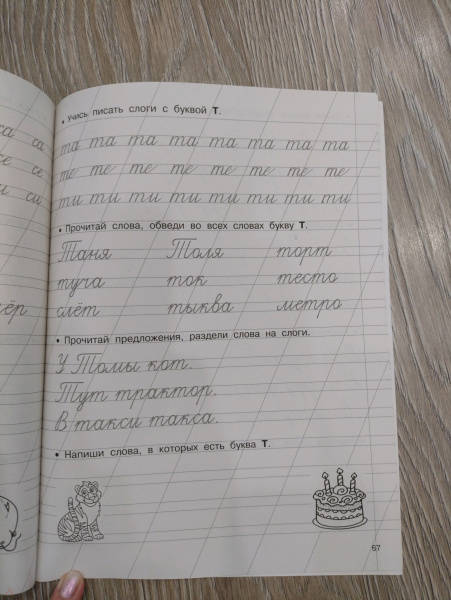 • Учись писать слоги с буквой Т.
са са та та та та та та та та
се се те те те те те те те те
си ти ти ти ти ти ти ти ти
• Прочитай слова, обведи во всех словах букву Т.
Таня Толя торт
туча ток тесто
слёт тыква метро
• Прочитай предложения, раздели слова на слоги.
У Томы кот.
Тут трактор.
В такси такса.
• Напиши слова, в которых есть буква Т.
67